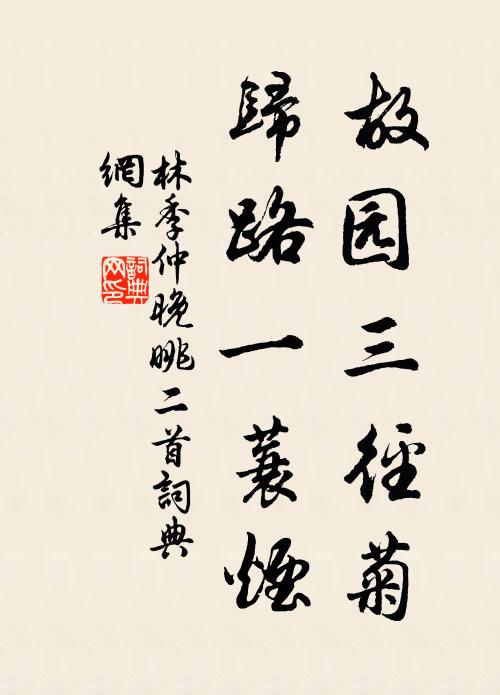 故园三径菊
歸路一蓑煙
林季仲晚眺二首詞典
網集
詞典
网印